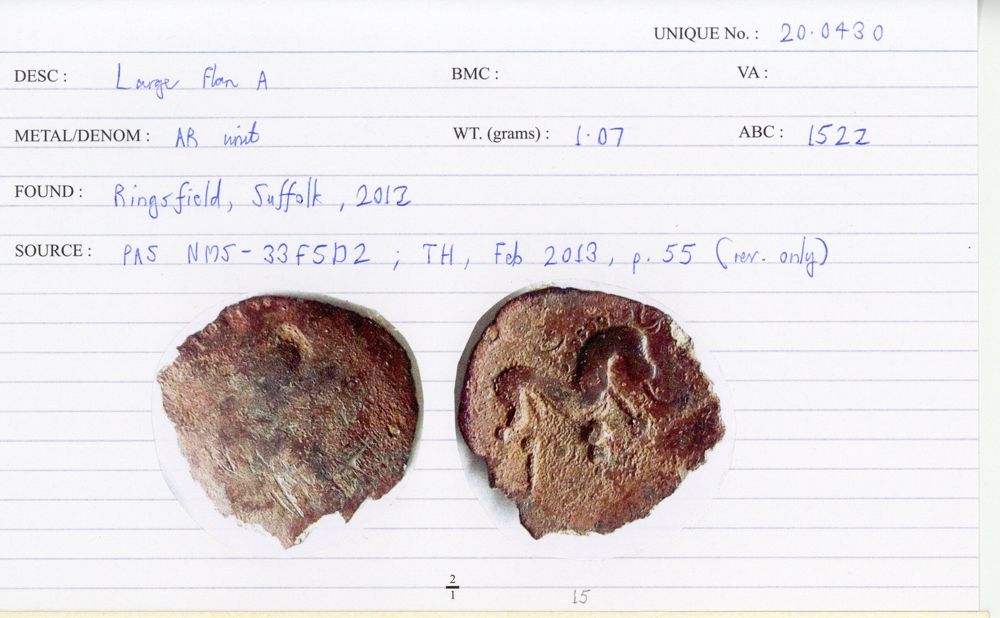 UNIQUE No. : 20.0430
DESC : Large Flan A BMC : VA :
METAL/DENOM : AR unit WT. (grams) : 1.07 ABC : 1522
FOUND : Ringsfield, Suffolk, 2012
SOURCE : PAS NMS-33F5D2 ; TH, Feb 2013, p. 55 (rev. only)
2
1 15